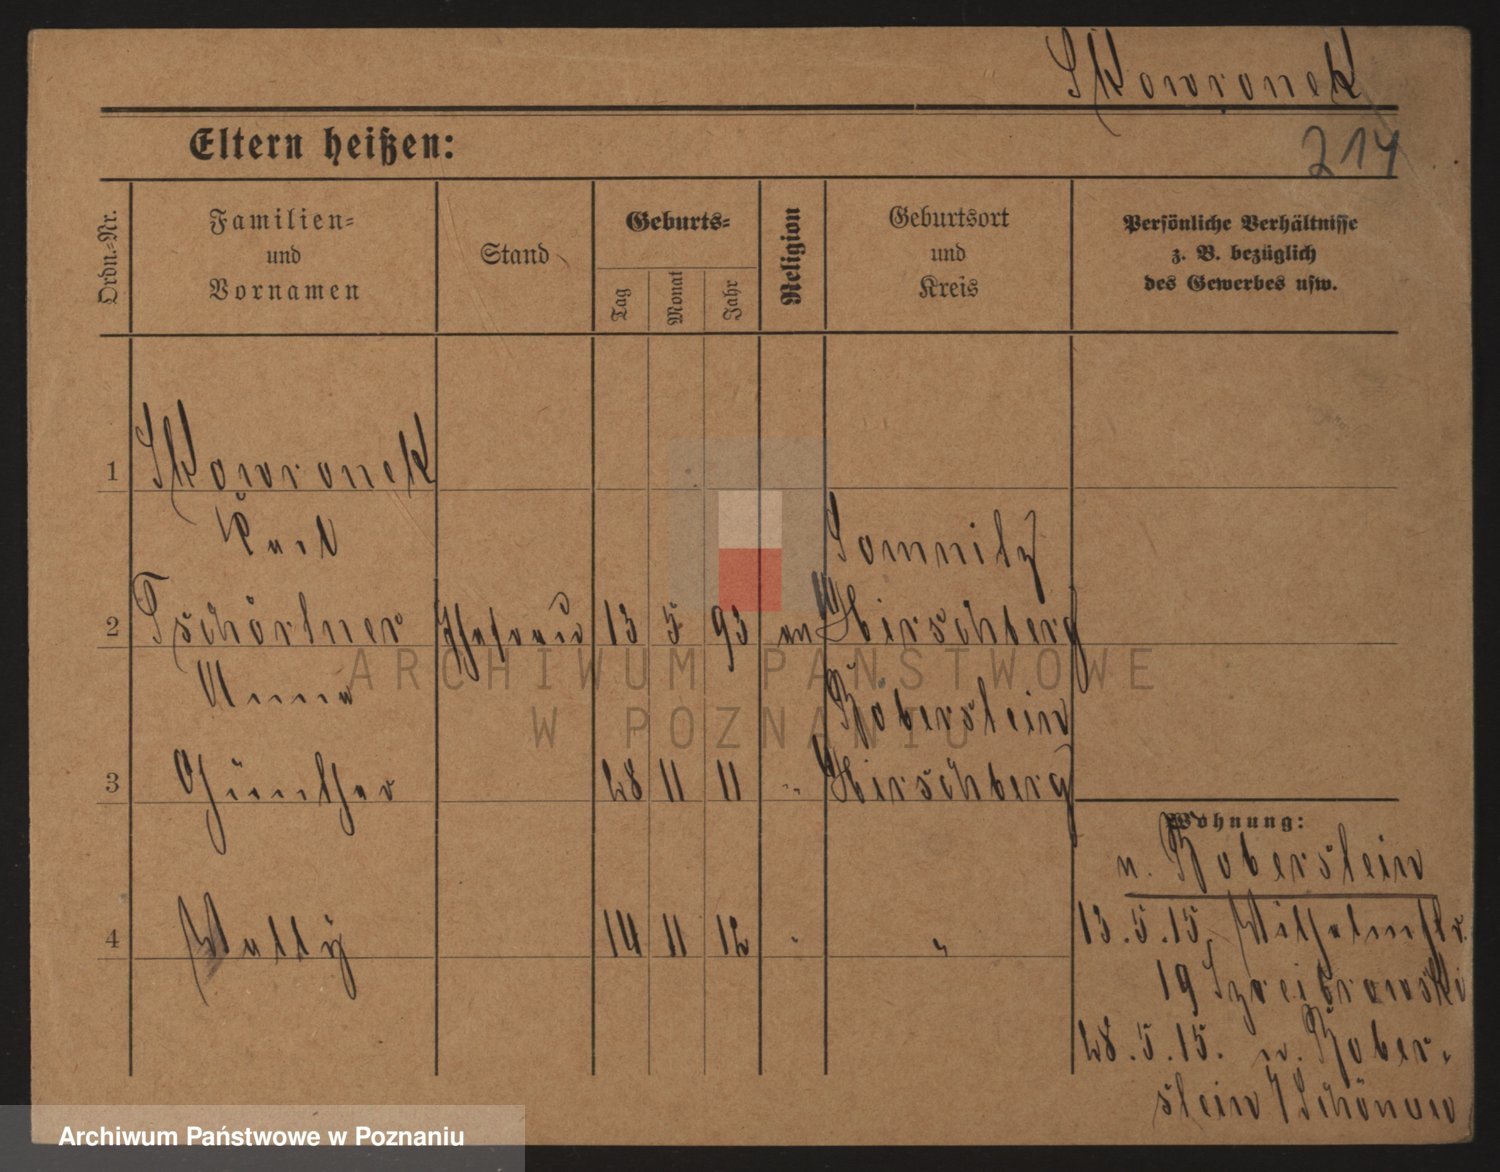 Skowronek
Eltern heißen:
214
Ordn.-Nr.
Familien-
und
Vornamen
Stand
Geburts-
Tag
Monat
Jahr
Religion
Geburtsort
und
Kreis
Persönliche Verhältnisse
z. B. bezüglich
des Gewerbes usw.
1 Skowronek
Karl
Lomnitz
2 Tschörtner Ehefrau 13 5 93 ev Hirschberg
Anna
Boberstein
3 Günther 28 11 11 " Hirschberg
Wohnung:
n. Boberstein
4 Wally 14 11 12 " "
13.5.15. Wilhelmstr.
19
28.5.15. n. Bober-
stein / Schönau
ARCHIWUM PAŃSTWOWE
W POZNANIU
Archiwum Państwowe w Poznaniu